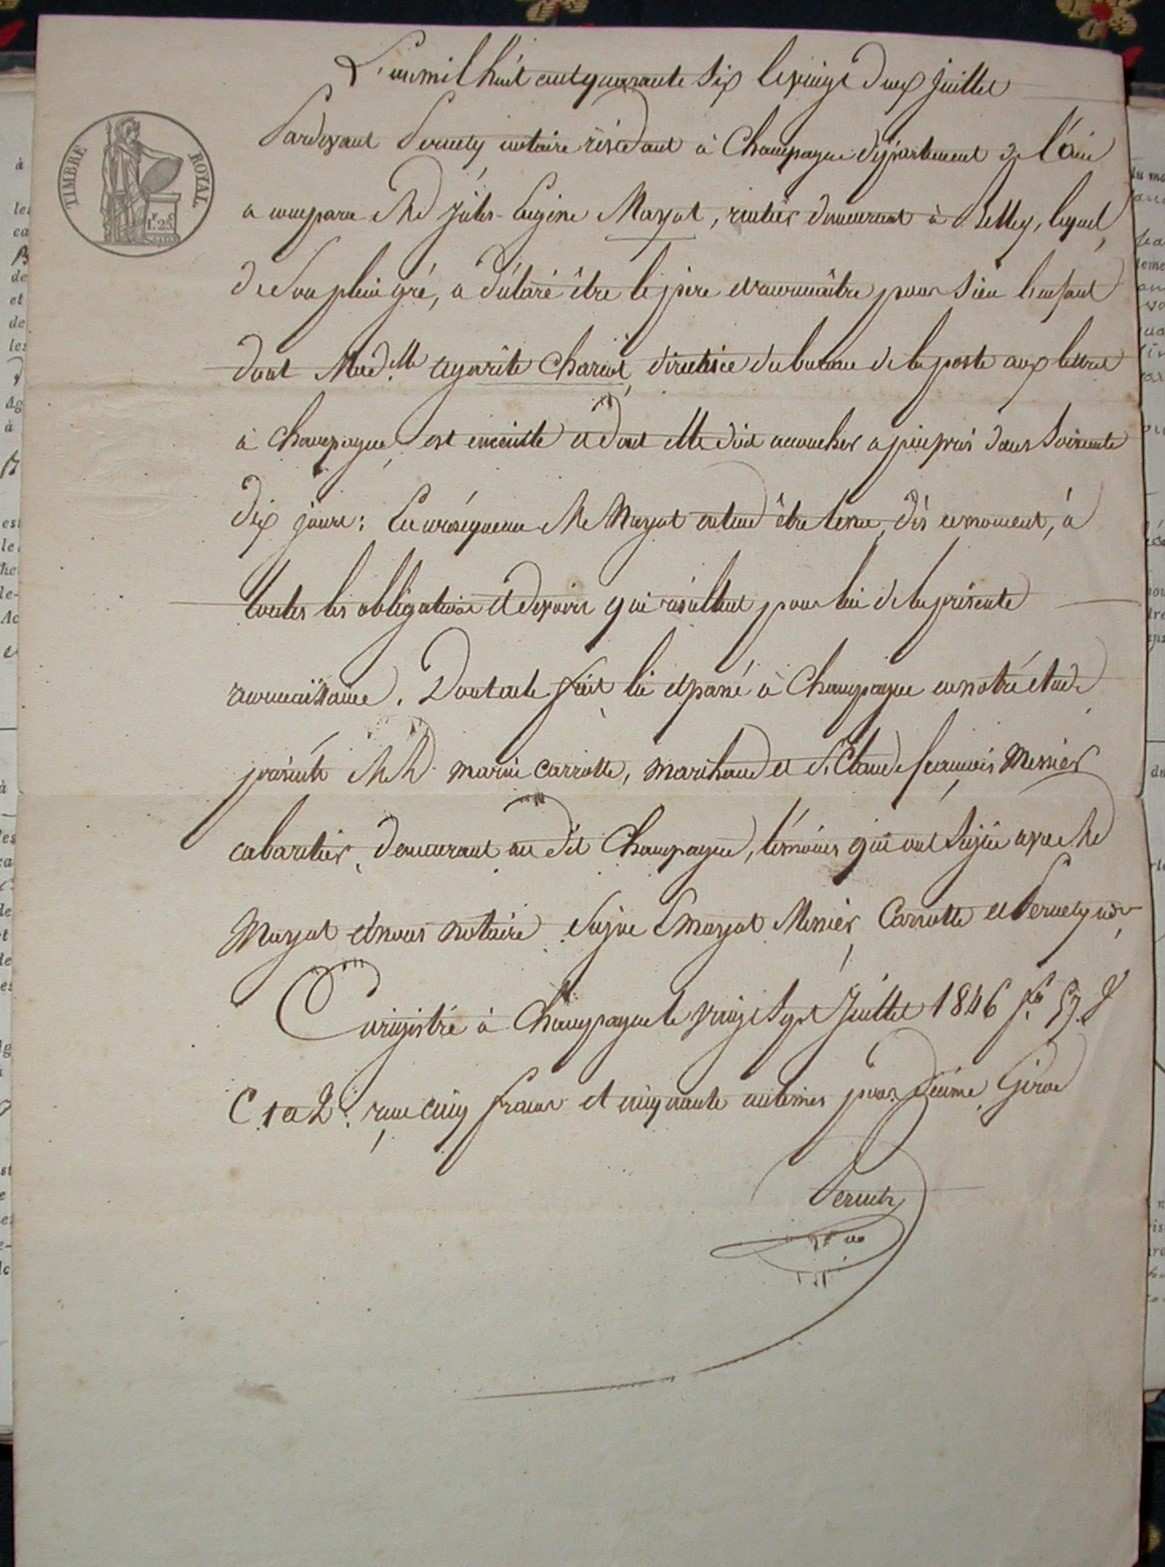 L'an mil huit cent quarante six le vingt deux juillet
Pardevant Peruety notaire résidant à Champagne département de l'ain
TIMBRE ROYAL
1f.25c
a comparu Mr Jules-Eugène Mayat, rentier demeurant à Belley, lequel
de son plein gré, a déclaré être le père et reconnaître pour sien l'enfant
dont Madelle agarite Chariot, directrice du bureau de la poste aux lettres
à Champagne, est enceinte et dont elle doit accoucher a peu près dans soixante
dix jours: En conséquence Mr Mayat entend être tenu, dès ce moment, à
toutes les obligations et devoirs qui résultent pour lui de la présente
reconnaissance. Dont acte fait lu et passé à Champagne en notre étude
présents MM. marin Carrotte, marchand et Sr Claude francois Messier
cabaretier, demeurant au dit Champagne, témoins qui ont signé avec Mr
Mayat et nous notaire. Signé E mayat Messier, Carrotte et Peruety nre
Enregistré à Champagne le vingt sept Juillet 1846 fo 57.
C. 1 a 2: reçu cinq francs et cinquante centimes pour Décime. Girod